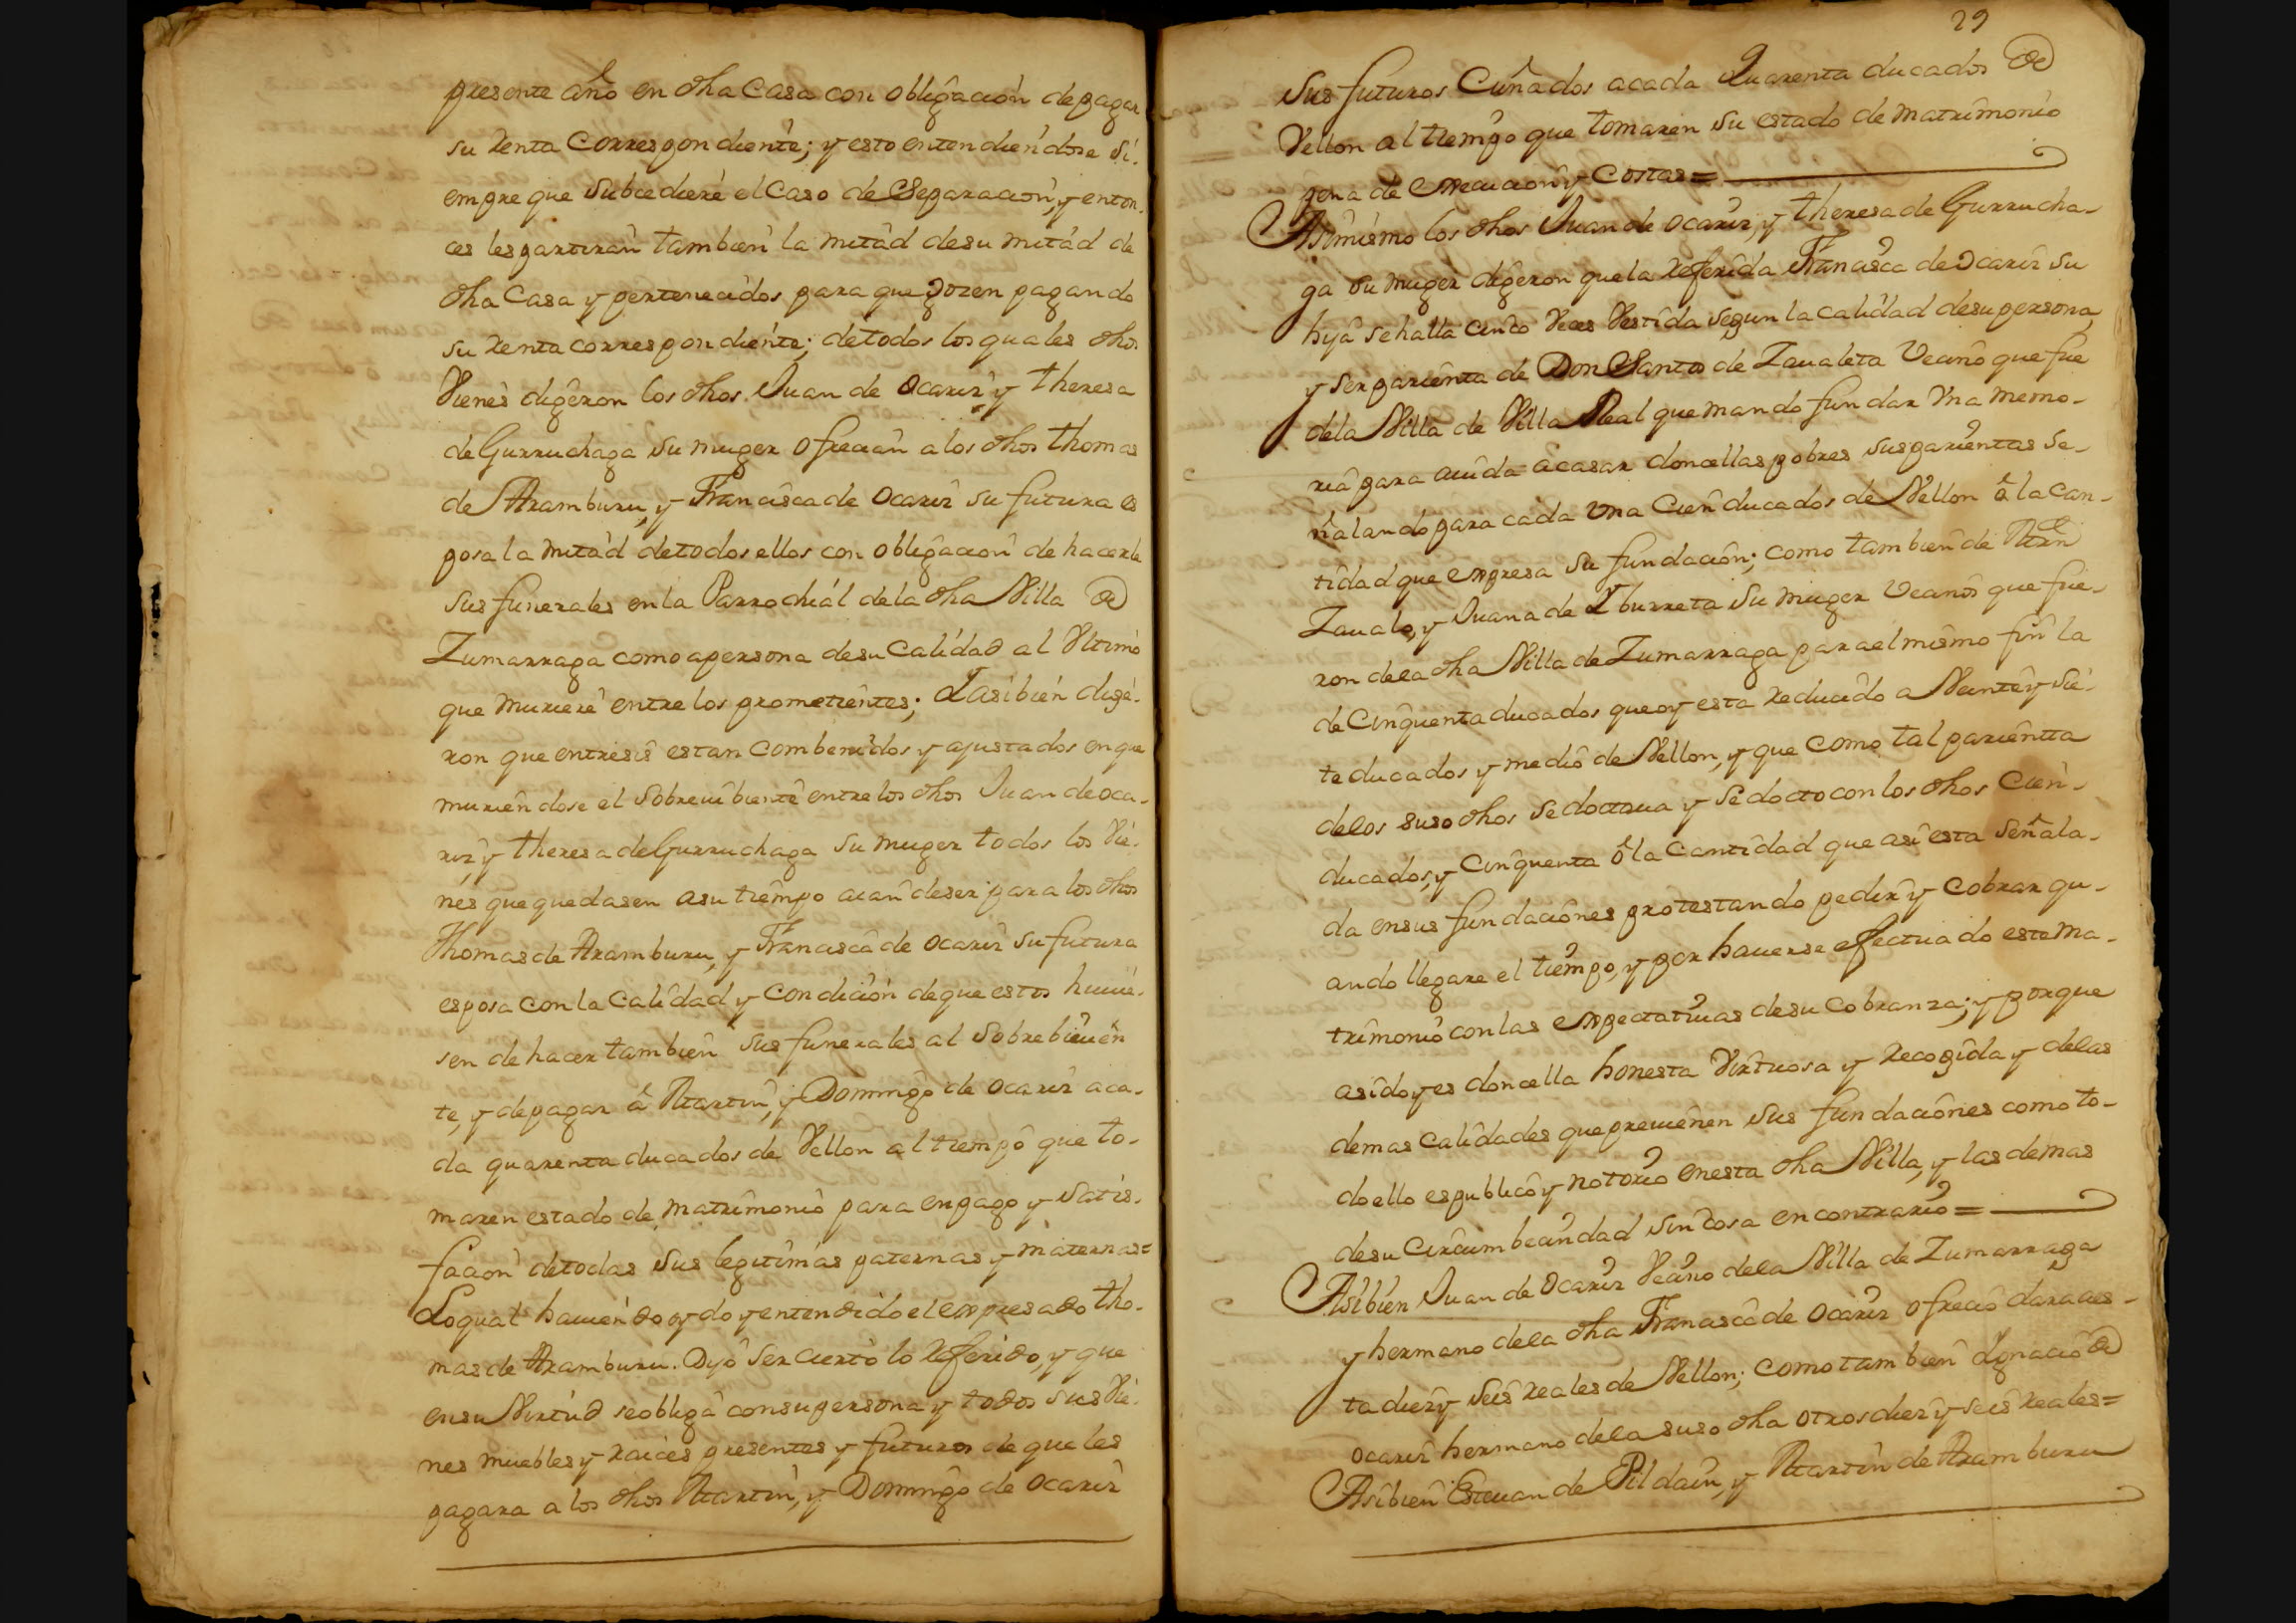 presente año en dha Casa con obligacion de pagar
su renta Correspondiente; y esto entendiendose si-
empre que subcediere el Caso de Separacion, y enton-
ces les partiran tambien la mitad de su mitad de
dha Casa y pertenecidos para que gozen pagando
su renta correspondiente; de todos los quales dhos
Vienes digeron los dhos Juan de Ocariz, y Theresa
de Gurruchaga su muger ofrecian a los dhos Thomas
de Aramburu, y Francisca de Ocariz su futura es
posa la mitad de todos ellos con obligacion de hacerle
sus funerales en la Parrochial de la dha Villa de
Zumarraga como a persona de su Calidad al Vltimo
que muriere entre los prometientes; Y asi bien dige-
ron que entre si estan Combenidos y ajustados en que
muriendose el Sobreuibiente entre los dhos Juan de Oca-
riz, y Theresa de Gurruchaga su muger todos los Vie-
nes que quedasen a su tiempo aian de ser para los dhos
Thomas de Aramburu, y Francisca de Ocariz su futura
esposa con la Calidad y Condicion de que estos huuie-
sen de hacer tambien sus funerales al Sobrebiuien
te, y de pagar â Martin, y Domingo de Ocariz aca-
da quarenta ducados de Vellon al tiempo que to-
maren estado de matrimonio para en pago y Satis-
facion de todas sus legitimas paternas y maternas=
Lo qual hauiendo oydo y entendido el expresado Tho-
mas de Aramburu. Dijo ser cierto lo referido, y que
en su Virtud se obliga con su persona y todos sus Vie-
nes muebles y raices presentes y futuros de que les
pagara a los dhos Martin, y Domingo de Ocariz
29
Sus futuros Cuñados acada Quarenta ducados de
Vellon al tiempo que tomaren su estado de matrimonio
pena de execucion y Costas=
Asimismo los dhos Juan de Ocariz, y Theresa de Gurrucha-
ga su muger digeron que la referida Francisca de Ocariz su
hija se halla cinco Veces Vestida segun la calidad de su persona,
y ser parienta de Don Santos de Zaualeta Vecino que fue
de la Villa de Villa Real que mando fundar Vna memo-
ria para aiuda â casar doncellas pobres sus parientas se-
ñalando para cada vna Cien ducados de Vellon ô la can-
tidad que expresa su fundacion; como tambien de Mrn
Zauala, y Juana de Yburreta su muger Vecinos que fue-
ron de la dha Villa de Zumarraga para el mismo fin la
de Cinquenta ducados que oy esta reducido a Veinte y sie-
te ducados y medio de Vellon, y que como tal parientta
de los suso dhos se doctaua y se docto con los dhos Cien-
ducados, y Cinquenta ô la Cantidad que asi esta Señala-
da en sus fundaciones protestando pedir y Cobrar qu-
ando llegare el tiempo, y por hauerse efectuado este Ma-
trimonio con las expectatiuas de su Cobranza; y porque
a sido y es doncella honesta Virtuosa y recogida y de las
demas calidades que preuienen sus fundaciones como to-
do ello es publico y notorio en esta dha Villa, y las demas
de su Circumbecindad sin cosa en contrario=
Asi bien Juan de Ocariz Vecino de la Villa de Zumarraga
y hermano de la dha Francisca de Ocariz ofrecio dar a es-
ta diez y seis reales de Vellon; como tambien Ygnacio de
Ocariz hermano de la suso dha otros diez y seis reales=
Asi bien Esteuan de Pildain, y Martin de Aramburu